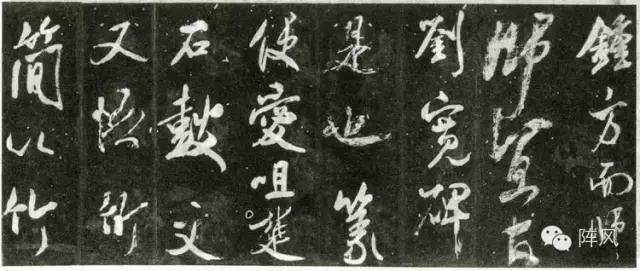 鍾方而師
師宜官
劉寬碑
是也篆
便愛咀楚
石鼓文
又悟竹
簡以竹
阵风